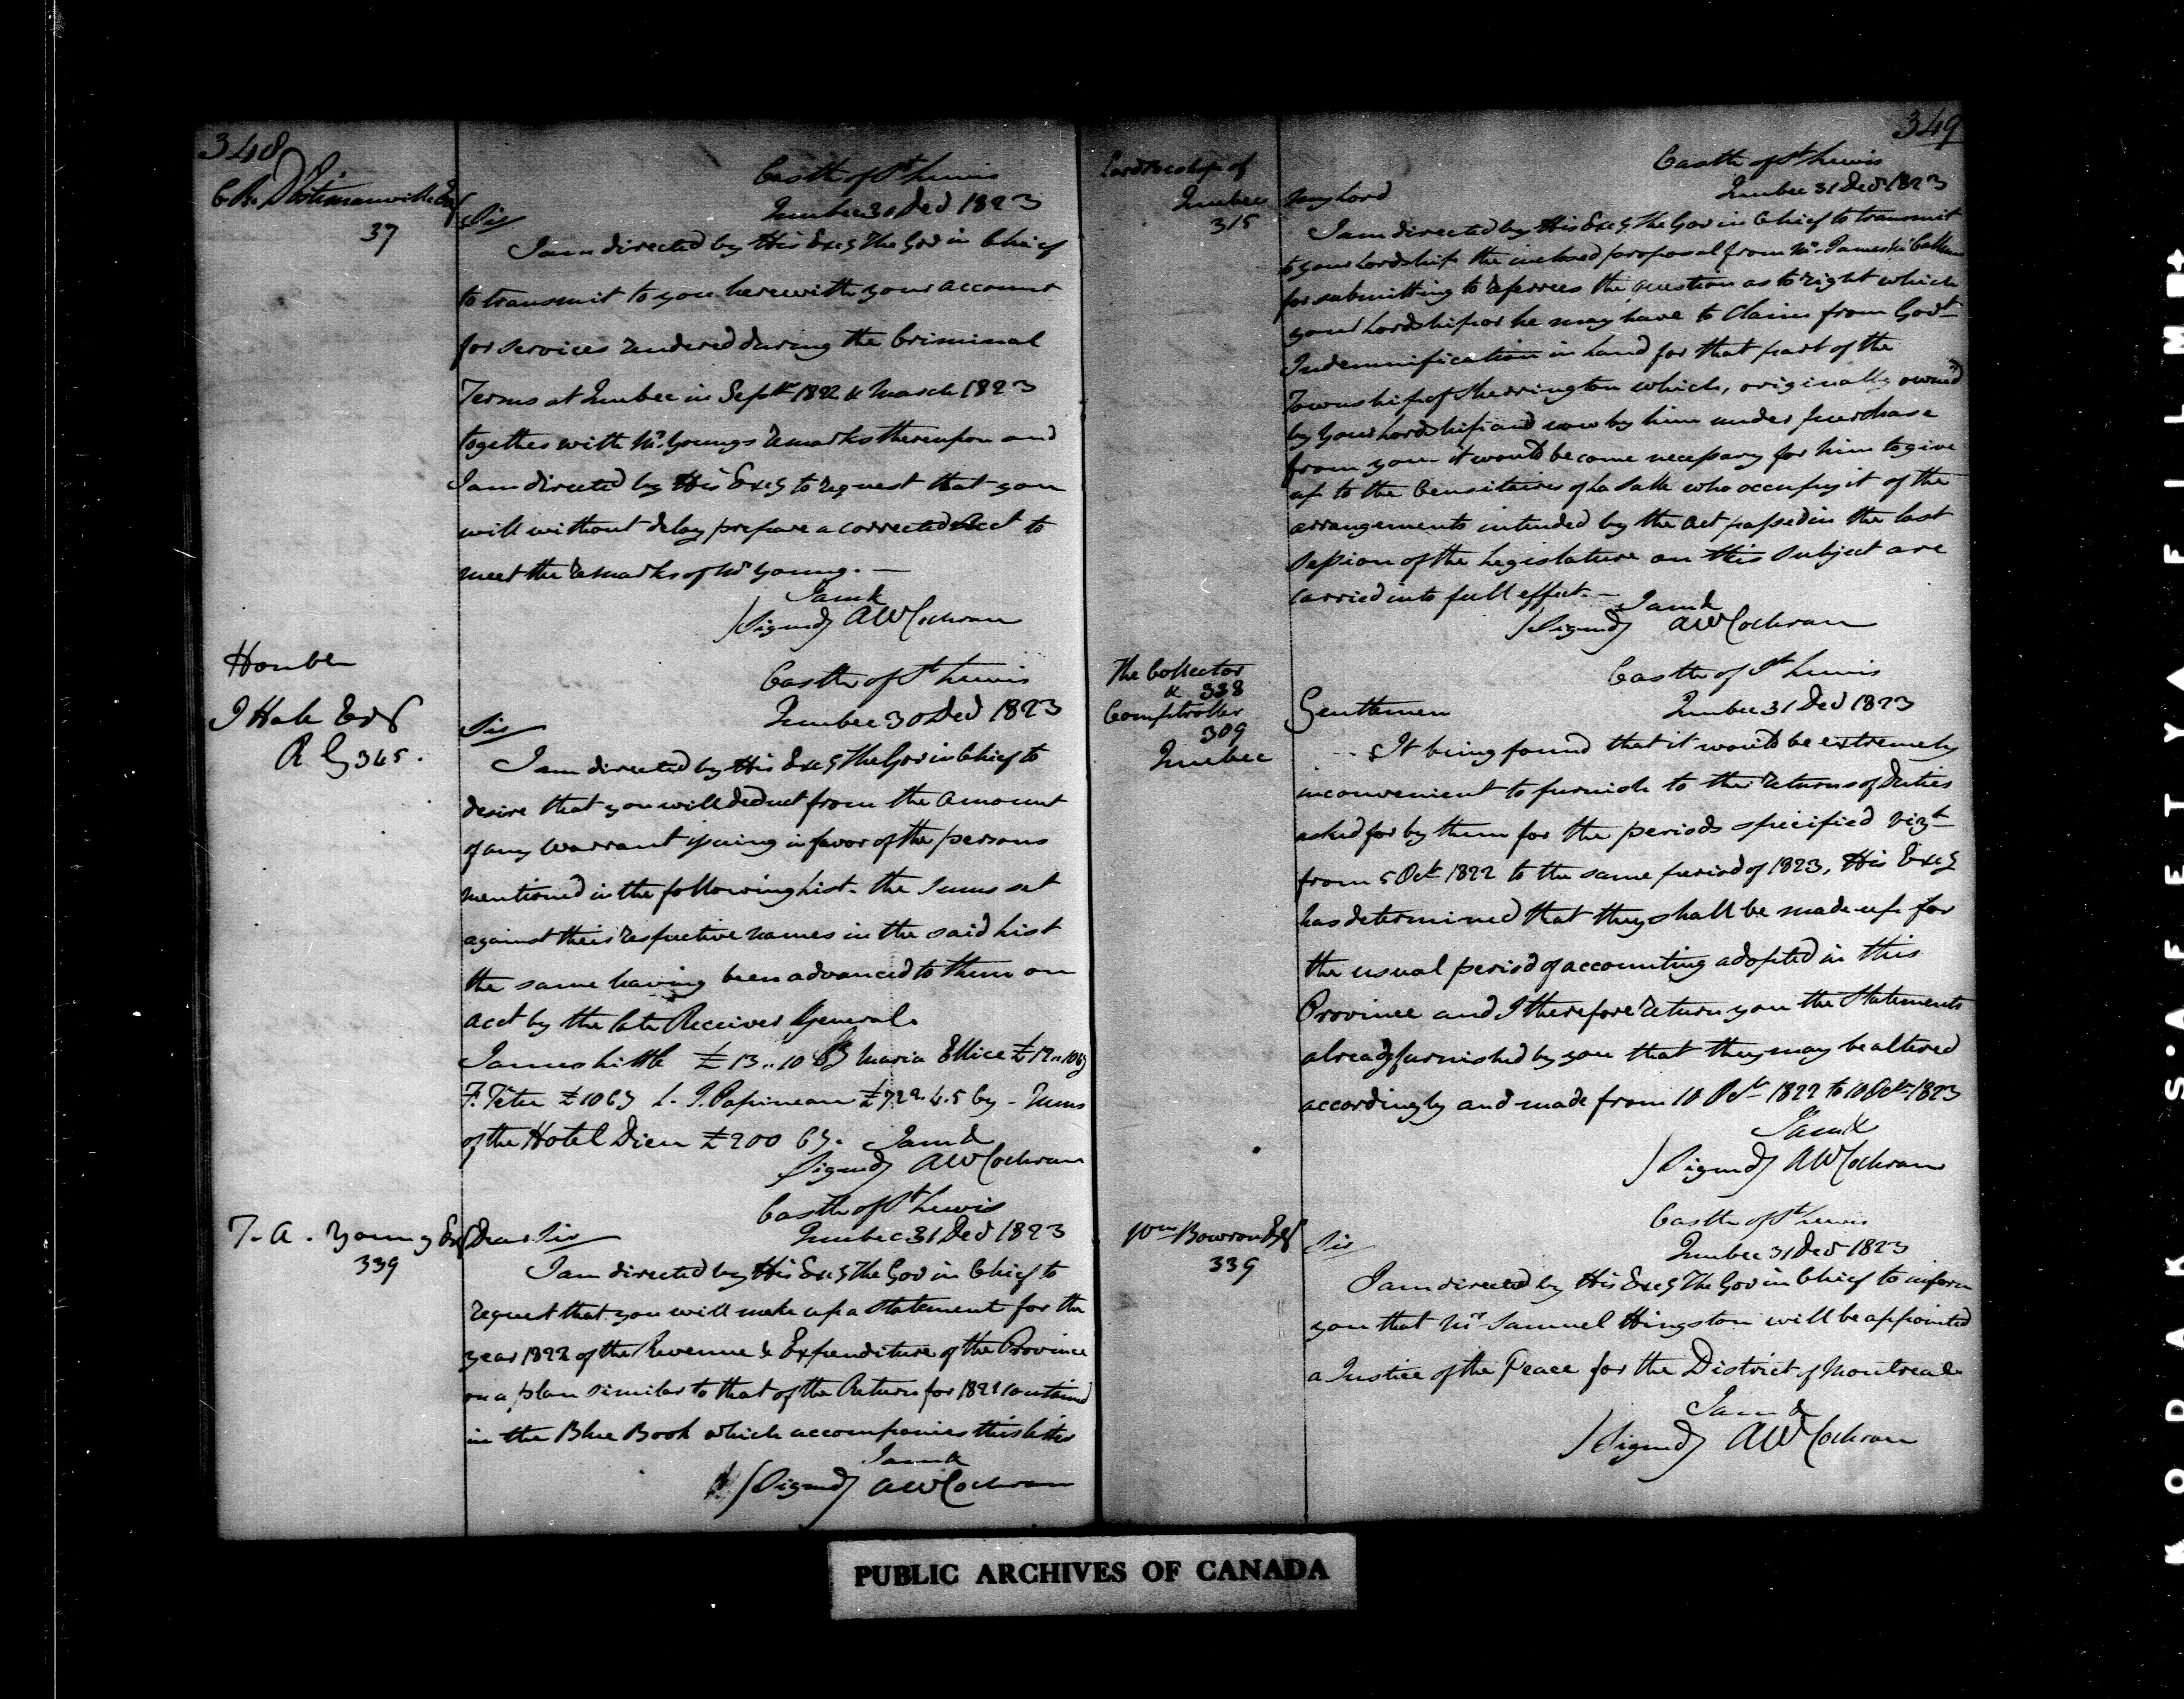 348
C. R. D'Estimauville Esq
37
Castle of St Lewis
Quebec 30 Decr 1823
Sir
I am directed by His Excy The Gov in Chief
to transmit to you herewith your account
for services rendered during the Criminal
Terms at Quebec in Septr 1822 & March 1823
together with Mr. Youngs remarks thereupon and
I am directed by His Excy to request that you
will without delay prepare a corrected Acct to
meet the remarks of Mr Young. —
I am &
/Signed/ AW Cochran
Honble
J Hale Esqr
R G 345.
Castle of St Lewis
Quebec 30 Decr 1823
Sir
I am directed by His Excy The Gov in Chief to
desire that you will deduct from the amount
of any Warrant issuing in favor of the persons
mentioned in the following List. the sums set
against their respective names in the said List
the same having been advanced to them on
acct by the late Receiver General.
James Little £13..10 Cy Maria Ellice £12..10 Cy
F. Tetu £10 Cy L. J. Papineau £722.4.5 Cy - Nuns
of the Hotel Dieu £200 Cy. I am &
Signed/ AW Cochran
T. A. Young Esq
339
Castle of St Lewis
Quebec 31 Decr 1823
Dear Sir
I am directed by His Excy The Gov in Chief to
request that you will make up a statement for the
year 1822 of the Revenue & Expenditure of the Province
on a plan similar to that of the Return for 1821 contained
in the Blue Book which accompanies this letter
I am &
/Signed/ AW Cochran
349
Lord Bishop of
Quebec
315
Castle of St Lewis
Quebec 31 Decr 1823
My Lord
I am directed by His Excy The Gov in Chief to transmit
to your Lordship the inclosed proposal from Mr. James Mc Callum
for submitting to referees the question as to right which
your Lordship or he may have to Claim from Govt
Indemnification in Land for that part of the
Township of Sherrington which, originally owned
by your Lordship and now by him under purchase
from you it would become necessary for him to give
up to the Censitaires of La Salle who occupy it if the
arrangements intended by the Act passed in the last
Session of the Legislature on this subject are
carried into full effect. —
I am &
/Signed/ AW Cochran
The Collector
& 338
Comptroller
309
Quebec
Castle of St Lewis
Quebec 31 Decr 1823
Gentlemen
It being found that it would be extremely
inconvenient to furnish to the returns of Duties
asked for by them for the periods specified vizt
from 5 Octr 1822 to the same period of 1823, His Excy
has determined that they shall be made up for
the usual period of accounting adopted in this
Province and I therefore return you the Statements
already furnished by you that they may be altered
accordingly and made from 10 Octr 1822 to 10 Octr 1823
I am &
/Signed/ AW Cochran
Wm Bowron Esqr
339
Castle of St Lewis
Quebec 31 Decr 1823
Sir
I am directed by His Excy The Gov in Chief to inform
you that Mr Samuel Hingston will be appointed
a Justice of the Peace for the District of Montreal.
I am &
/Signed/ AW Cochran
PUBLIC ARCHIVES OF CANADA
KODAK S'AFETY A FILM